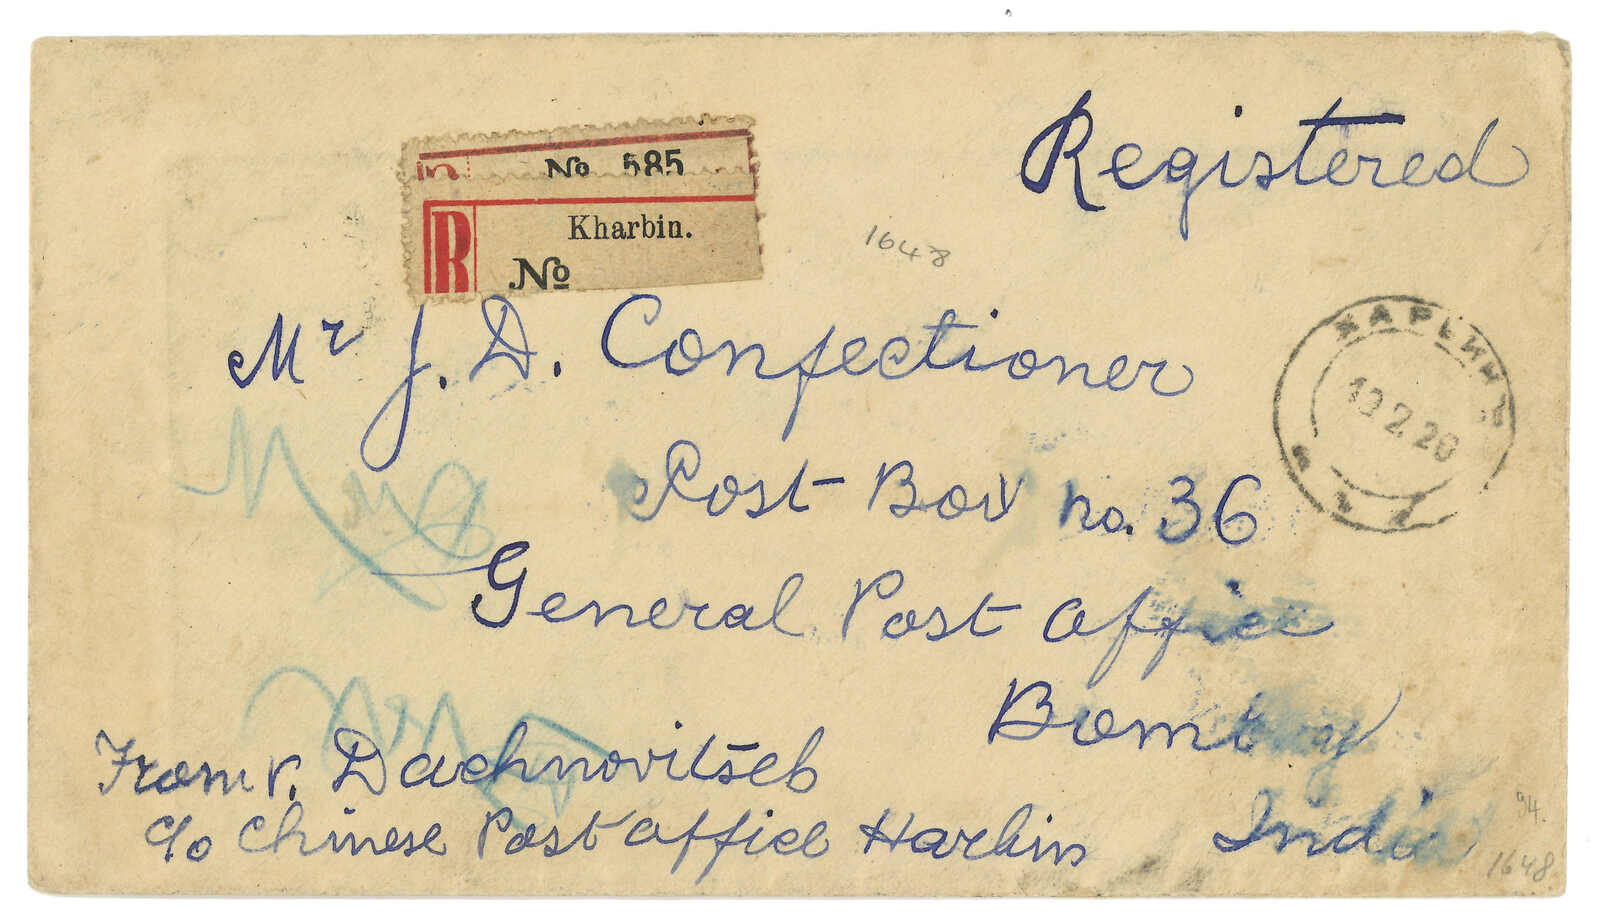 Registered
No 585
R Kharbin.
No
1648
Mr J. D. Confectioner
ХАРБИНЪ
13 2 20
Post Box no. 36
General Post Office
Bombay
From V. Dachnovitseb
c/o Chinese Post Office Harbin
India
94.
1648